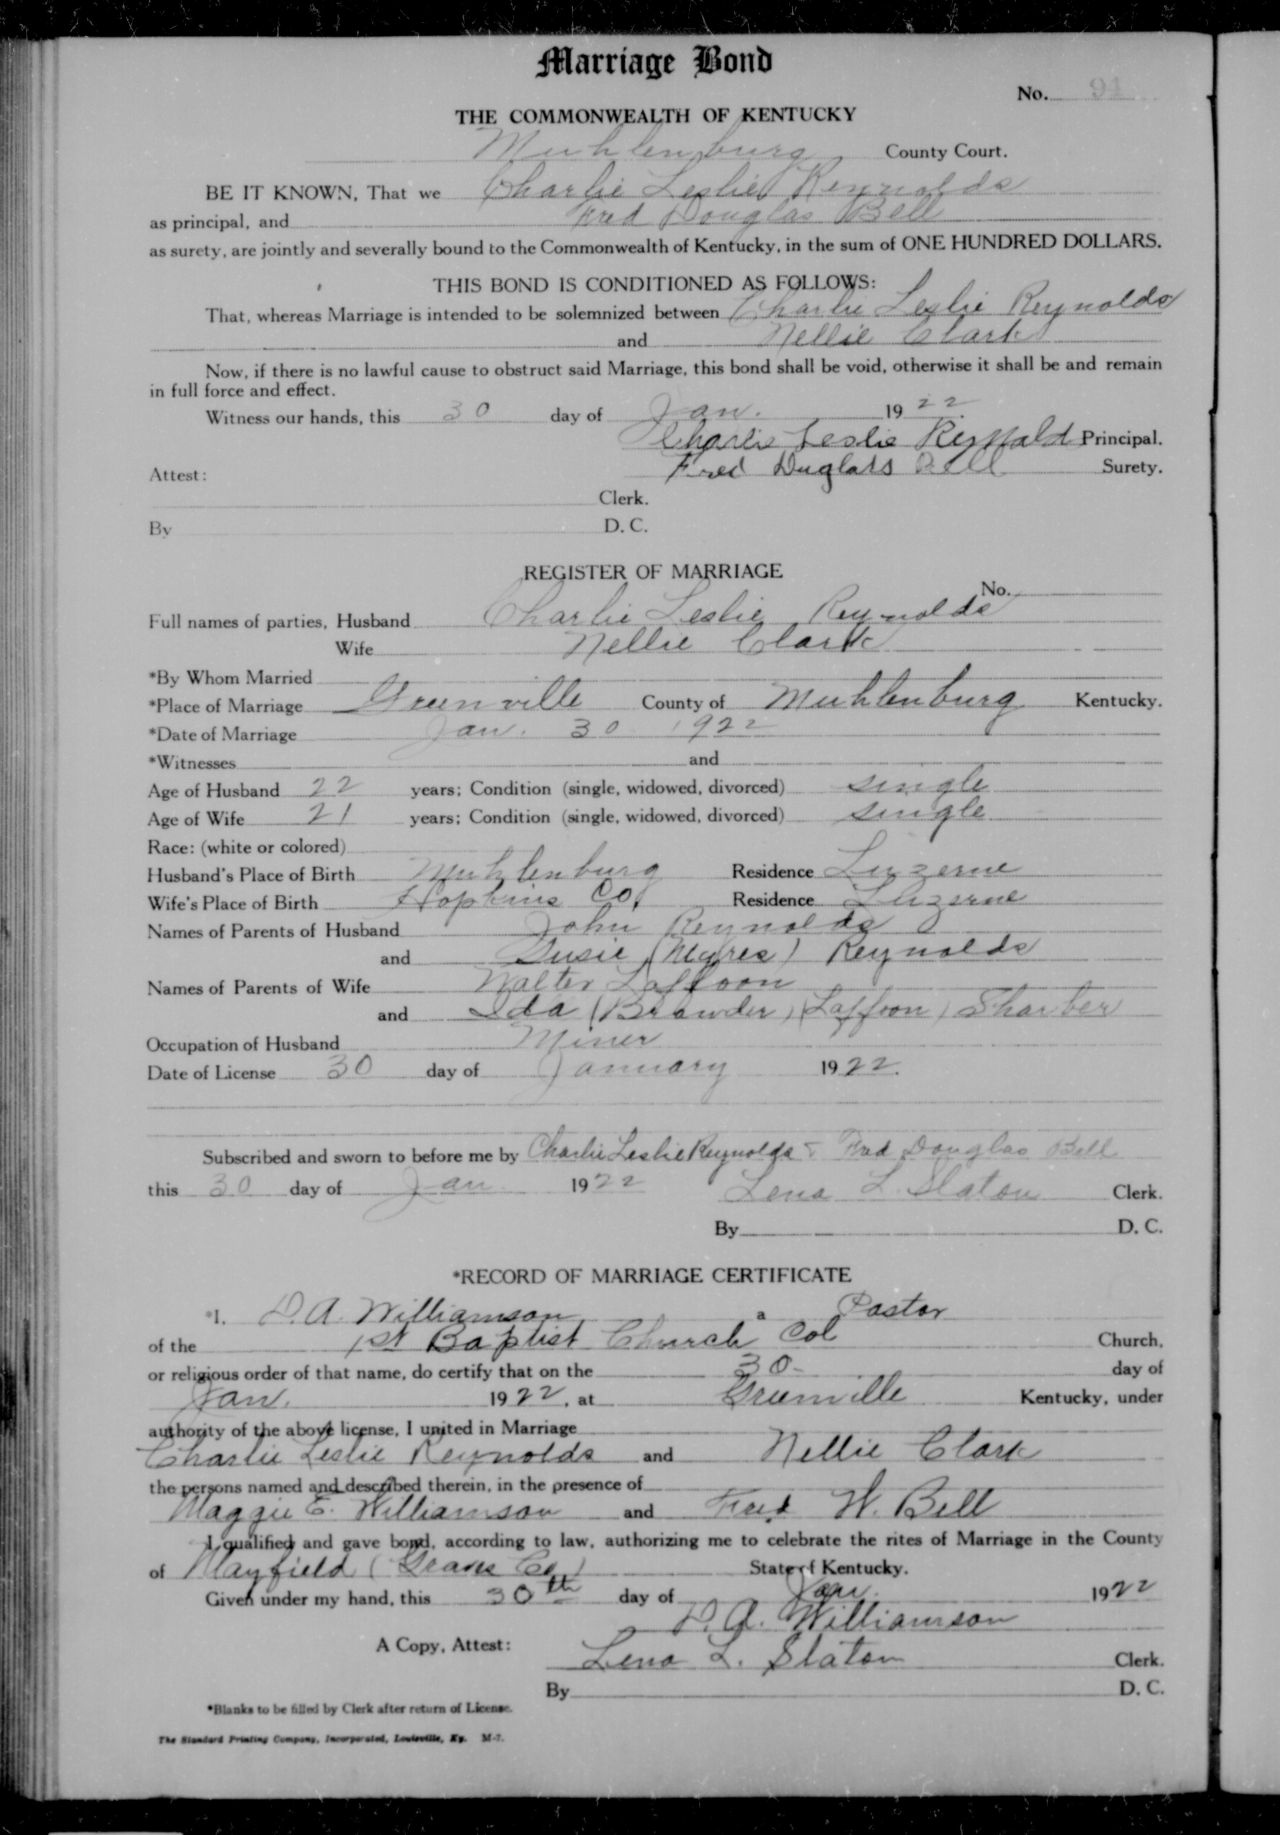 Marriage Bond
No. 91
THE COMMONWEALTH OF KENTUCKY
Muhlenburg County Court.
BE IT KNOWN, That we Charlie Leslie Reynolds
as principal, and Fred Douglas Bell
as surety, are jointly and severally bound to the Commonwealth of Kentucky, in the sum of ONE HUNDRED DOLLARS.
THIS BOND IS CONDITIONED AS FOLLOWS:
That, whereas Marriage is intended to be solemnized between Charlie Leslie Reynolds
and Nellie Clark
Now, if there is no lawful cause to obstruct said Marriage, this bond shall be void, otherwise it shall be and remain
in full force and effect.
Witness our hands, this 30 day of Jan. 1922.
Charlie Leslie Reynolds Principal.
Fred Duglars Bell Surety.
Attest:
Clerk.
By D. C.
REGISTER OF MARRIAGE
No.
Full names of parties, Husband Charlie Leslie Reynolds
Wife Nellie Clark
*By Whom Married
*Place of Marriage Greenville County of Muhlenburg Kentucky.
*Date of Marriage Jan. 30 1922
*Witnesses and
Age of Husband 22 years; Condition (single, widowed, divorced) single
Age of Wife 21 years; Condition (single, widowed, divorced) single
Race: (white or colored)
Husband's Place of Birth Muhlenburg Residence Luzerne
Wife's Place of Birth Hopkins Co. Residence Luzerne
Names of Parents of Husband John Reynolds
and Susie (Myres) Reynolds
Names of Parents of Wife Walter Laffoon
and Ida (Browder) (Laffoon) Sharber
Occupation of Husband Miner
Date of License 30 day of January 1922.
Subscribed and sworn to before me by Charlie Leslie Reynolds & Fred Douglas Bell
this 30 day of Jan 1922 Lena L. Slaton Clerk.
By D. C.
*RECORD OF MARRIAGE CERTIFICATE
*I, D. A. Williamson a Pastor
of the 1st Baptist Church Col Church,
or religious order of that name, do certify that on the 30 day of
Jan. 1922, at Greenville Kentucky, under
authority of the above license, I united in Marriage
Charlie Leslie Reynolds and Nellie Clark
the persons named and described therein, in the presence of
Maggie E. Williamson and Fred W. Bell
I qualified and gave bond, according to law, authorizing me to celebrate the rites of Marriage in the County
of Mayfield (Graves Co.) State of Kentucky.
Given under my hand, this 30th day of Jan. 1922
D. A. Williamson
A Copy, Attest: Lena L. Slaton Clerk.
By D. C.
*Blanks to be filled by Clerk after return of License.
The Standard Printing Company, Incorporated, Louisville, Ky. M-7.